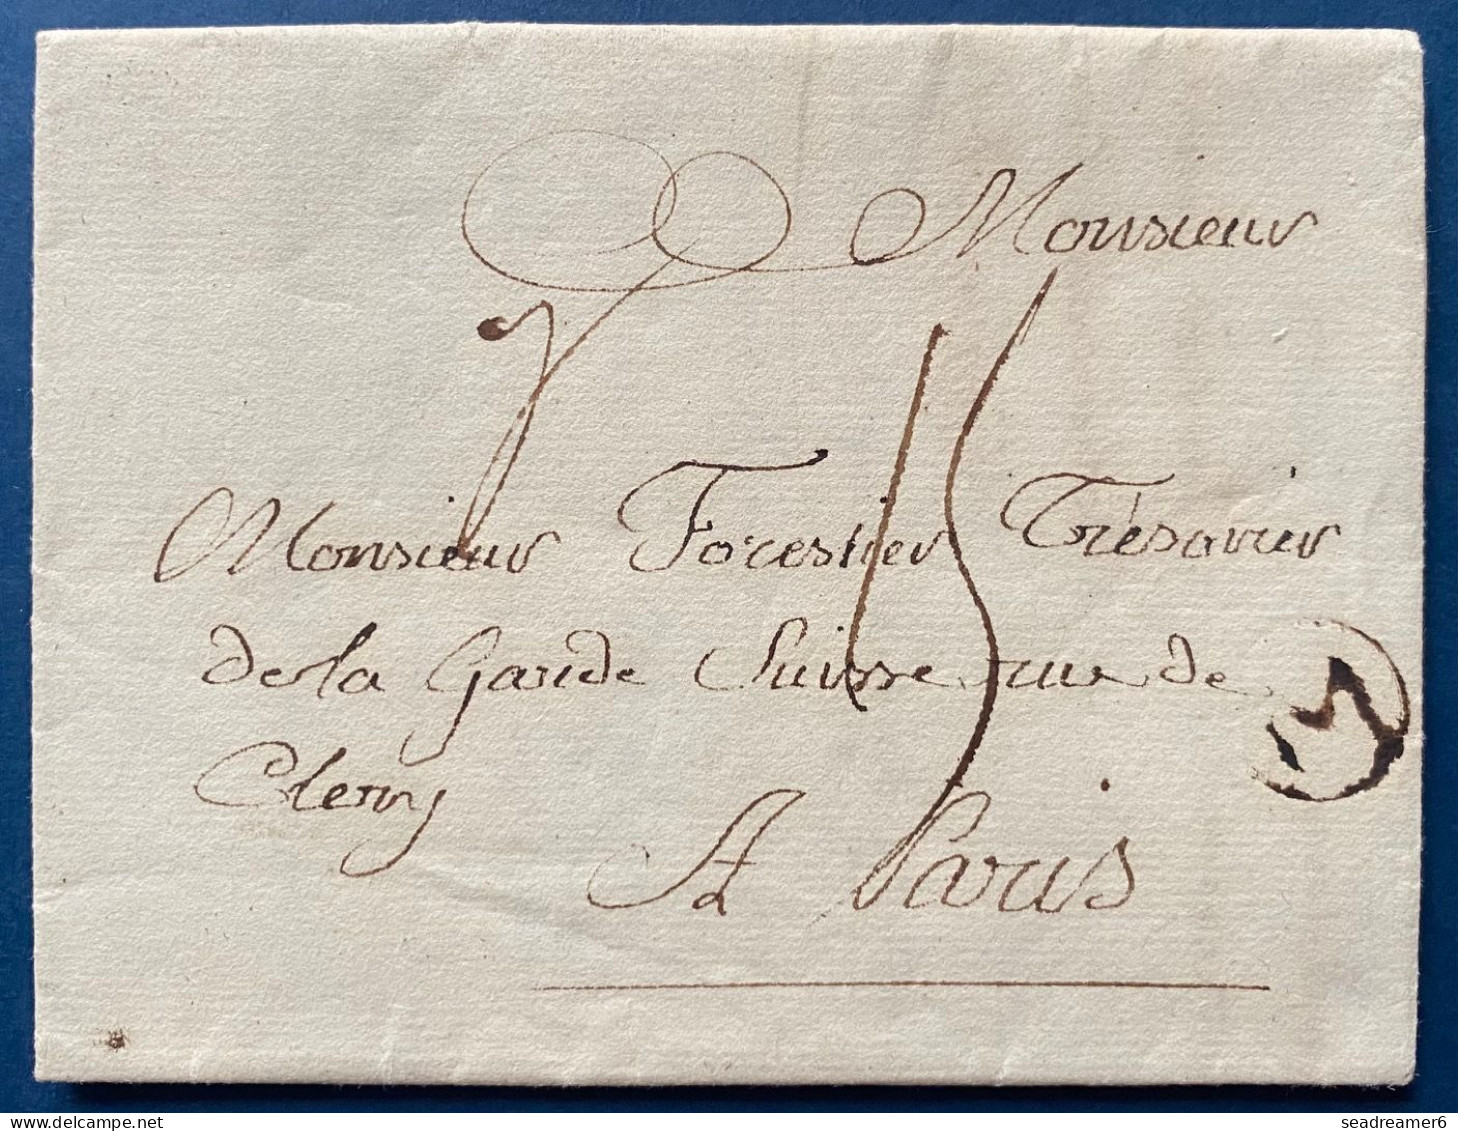 Monsieur
15
Monsieur Forestier Trésorier
de la Garde Suisse rue de
Clery
A Paris
seadreamer6